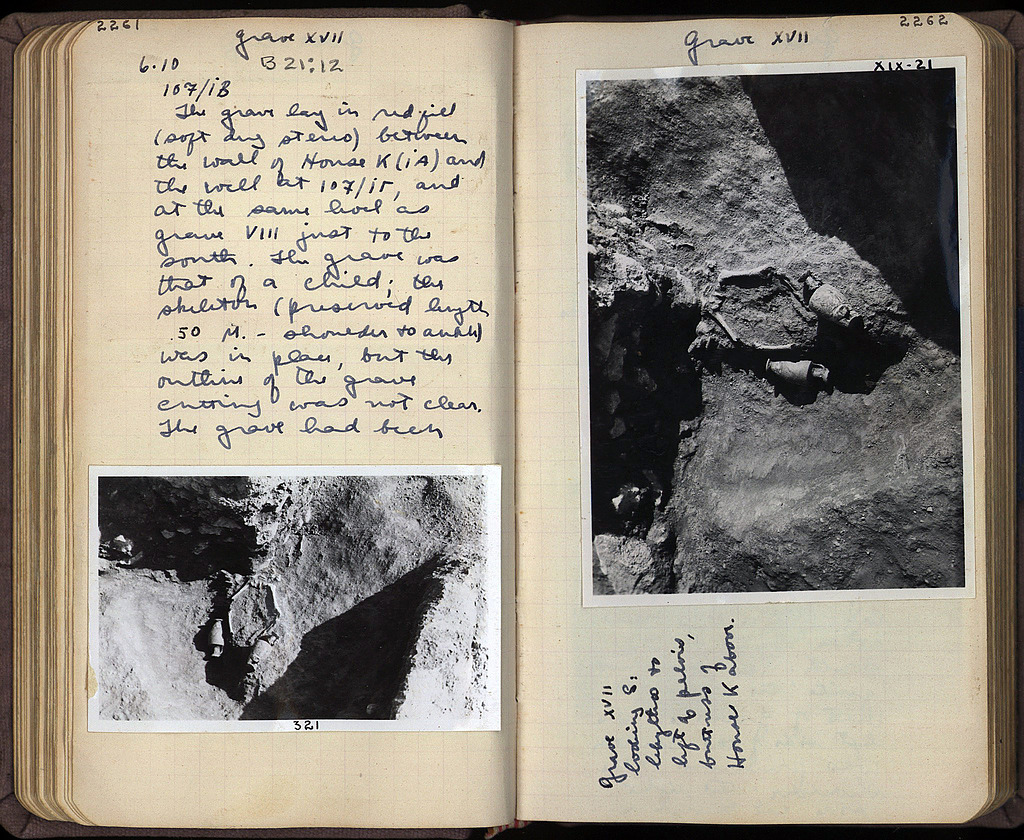 2261
Grave XVII
6.10 B 21:12
107/IB
The grave lay in red fill
(soft dug stereo) between
the wall of House K (iA) and
the well at 107/IT, and
at the same level as
grave VIII just to the
south. The grave was
that of a child; the
skeleton (preserved length
.50 M. - shoulder to ankle)
was in place, but the
outline of the grave
cutting was not clear.
The grave had been
321
2262
Grave XVII
XIX-21
Grave XVII
looking S:
lekythos to
left of pelvis,
buttress of
House K above.